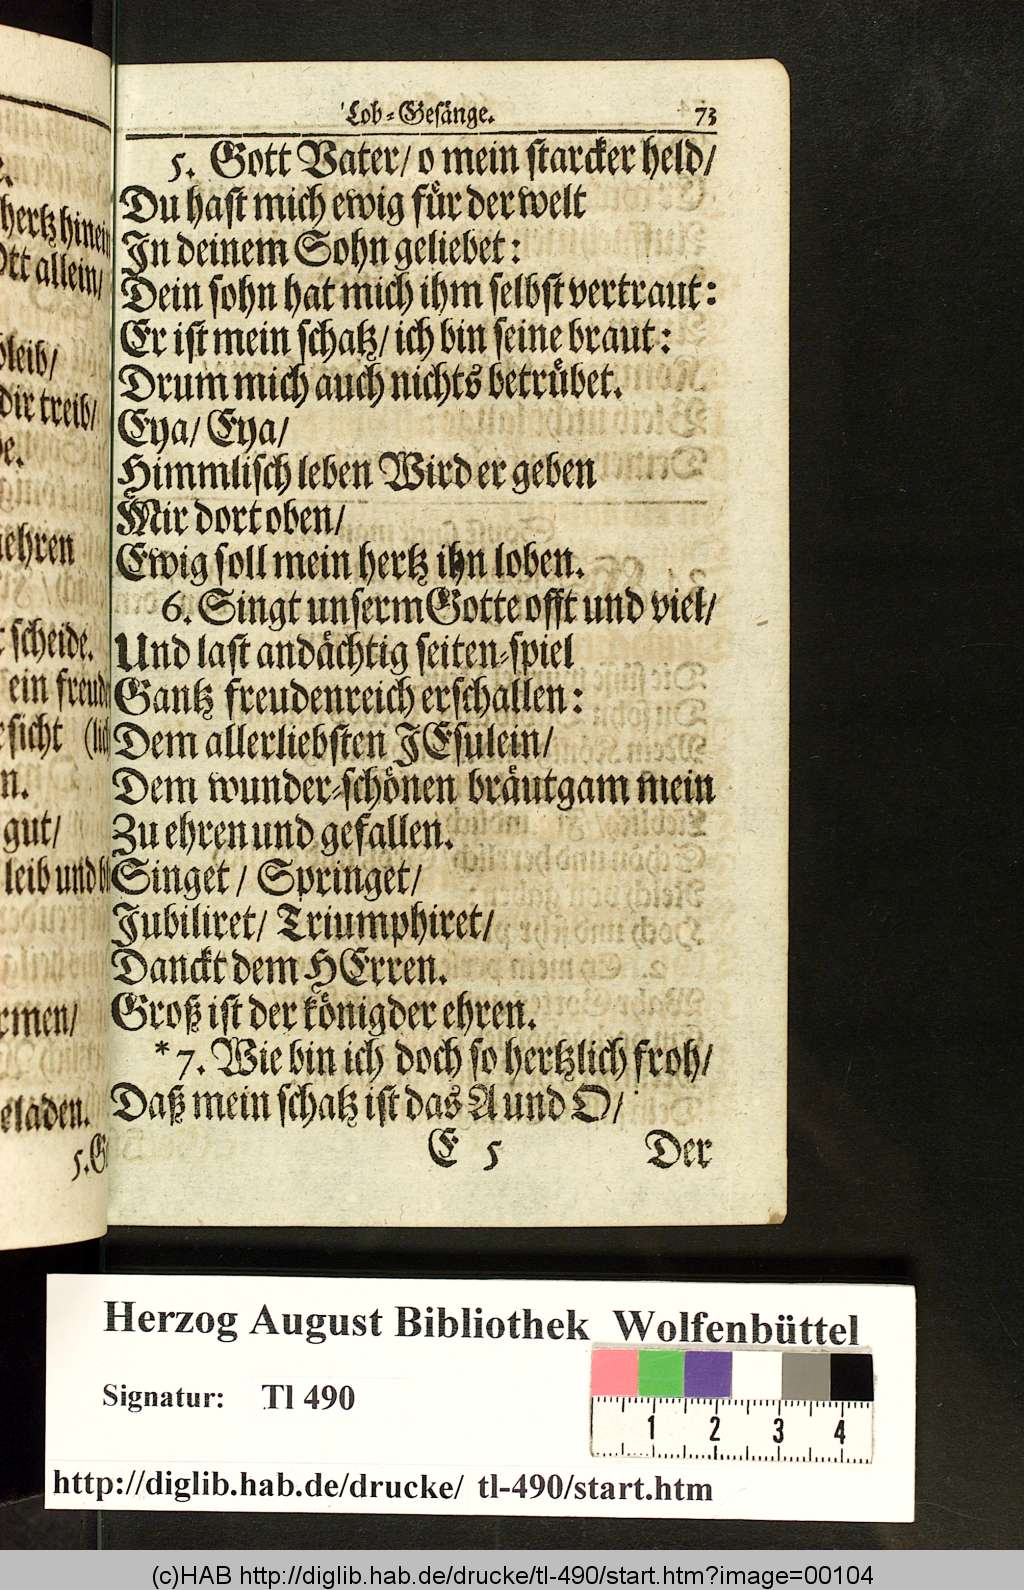 hertz hinein
Ott allein/
bleib/
dir treib/
ehren
scheide.
ein freud
sicht (lich
n.
gut/
leib und bl
rmen/
eladen.
5. G
Lob-Gesänge. 73
5. Gott Vater/ o mein starcker held/
Du hast mich ewig für der welt
In deinem Sohn geliebet:
Dein sohn hat mich ihm selbst vertraut:
Er ist mein schatz/ ich bin seine braut:
Drum mich auch nichts betrübet.
Eya/ Eya/
Himmlisch leben Wird er geben
Mir dort oben/
Ewig soll mein hertz ihn loben.
6. Singt unserm Gotte offt und viel/
Und last andächtig seiten-spiel
Gantz freudenreich erschallen:
Dem allerliebsten JEsulein/
Dem wunder-schönen bräutgam mein
Zu ehren und gefallen.
Singet/ Springet/
Jubiliret/ Triumphiret/
Danckt dem HErren.
Groß ist der könig der ehren.
*7. Wie bin ich doch so hertzlich froh/
Daß mein schatz ist das A und O/
E 5 Der
Herzog August Bibliothek Wolfenbüttel
Signatur: Tl 490
1 2 3 4
http://diglib.hab.de/drucke/ tl-490/start.htm
(c)HAB http://diglib.hab.de/drucke/tl-490/start.htm?image=00104